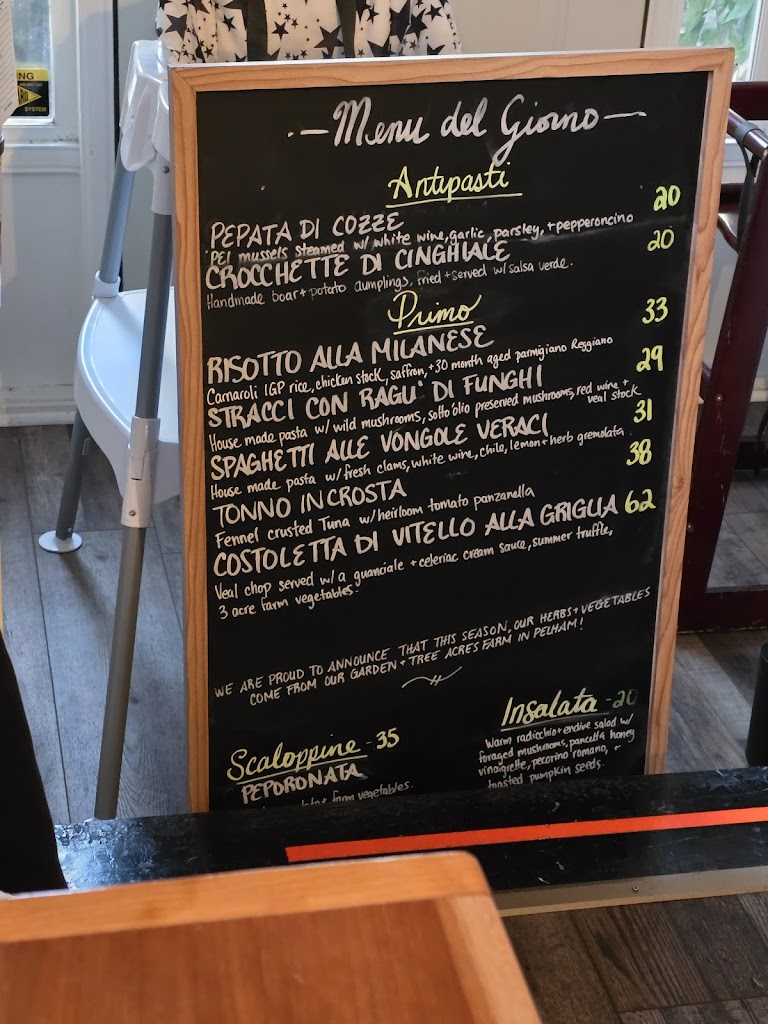 Menu del Giorno
Antipasti
PEPATA DI COZZE 20
PEI mussels steamed w/ white wine, garlic, parsley, + pepperoncino
CROCCHETTE DI CINGHIALE 20
Handmade boar + potato dumplings, fried + served w/ salsa verde.
Primo
RISOTTO ALLA MILANESE 33
Carnaroli IGP rice, chicken stock, saffron, + 30 month aged parmigiano Reggiano
STRACCI CON RAGU' DI FUNGHI 29
House made pasta w/ wild mushrooms, sotto olio preserved mushrooms, red wine +
veal stock
SPAGHETTI ALLE VONGOLE VERACI 31
House made pasta w/ fresh clams, white wine, chile, lemon + herb gremolata.
TONNO IN CROSTA 38
Fennel crusted Tuna w/ heirloom tomato panzanella
COSTOLETTA DI VITELLO ALLA GRIGLIA 62
Veal chop served w/ a guanciale + celeriac cream sauce, summer truffle,
3 acre farm vegetables.
WE ARE PROUD TO ANNOUNCE THAT THIS SEASON, OUR HERBS + VEGETABLES
COME FROM OUR GARDEN + TREE ACRES FARM IN PELHAM!
Scaloppine - 35
PEPORONATA
farm vegetables.
Insalata - 20
Warm radicchio + endive salad w/
foraged mushrooms, pancetta honey
vinaigrette, pecorino romano, +
toasted pumpkin seeds.
SYSTEM